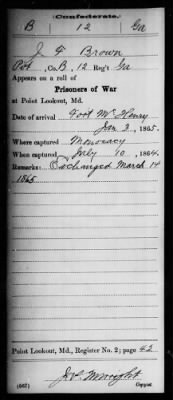 Confederate.
B 12 Ga
J F Brown
Pvt, Co. B, 12 Reg't Ga
Appears on a roll of
Prisoners of War
at Point Lookout, Md.
Date of arrival Fort McHenry
Jan 2, 1865.
Where captured Monocacy
When captured July 10, 1864.
Remarks: Exchanged March 14
1865
Point Lookout, Md., Register No. 2; page 42
Copyist